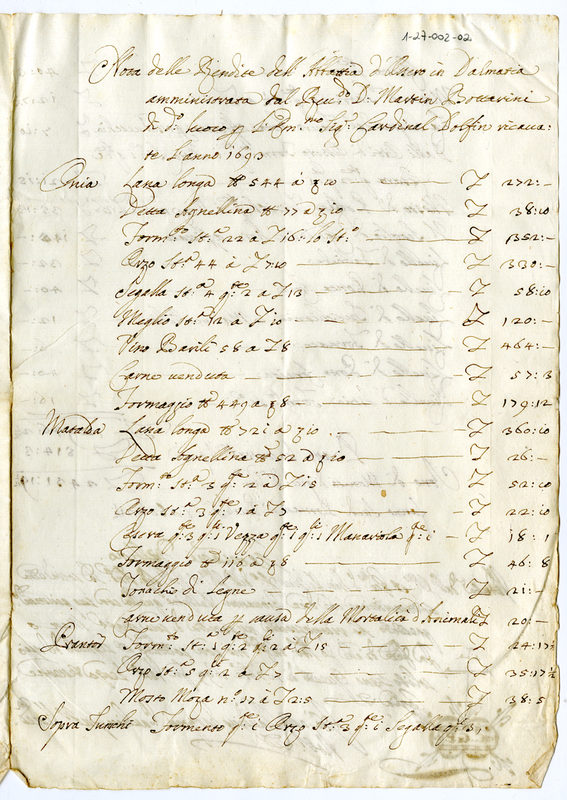 1-27-002-02
Nota delle Rendite dell' Abbatia d'Ossero in Dalmatia
amministrata dal Reu.do D. Martin Bottarini
di d.o luoco p l'Em.mo Sig.r Cardinal Dolfin ricaua-
te l'anno 1693
Ossia Lana longa ℔ 544 à ƺ 10 — £ 272:-
Detta Agnellina ℔ 77 a ƺ 10 — £ 38:10
Form.to St.a 22 à £ 16: lo St.o — £ 352:-
Orzo St.a 44 à £ 7:10 — £ 330:-
Segalla St.a 4 q.te 2 a £ 13 — £ 58:10
Meglio St.a 12 à £ 10 — £ 120:-
Vino Barile 58 a £ 8 — £ 464:-
Carne venduta — £ 57:3
Formaggio ℔ 449 a ƺ 8 — £ 179:12
Matalda Lana longa ℔ 721 a ƺ 10 — £ 360:10
Detta Agnellina ℔ 52 a ƺ 10 — £ 26:-
Form.to St.a 3 q.te 2 a £ 15 — £ 52:10
Orzo St.a 3 q.te 1 à £ 7 — £ 22:10
q.te 3 q.li 1 Vezza q.te 1 q.li 1 q.te 1 — £ 18:1
Formaggio ℔ 116 a ƺ 8 — £ 46:8
di Legne — £ 21:-
Carne venduta p causa della Mortalità d'Animali £ 20:-
Form.to St.a 1 q.te 2 q.li 2 à £ 15 — £ 24:17½
Orzo St.a 5 q.li 2 a £ 7 — £ 35:17½
Mosto Moza n.o 17 à £ 2:5 — £ 38:5
Sopra Formento q.te 1 Orzo St.a 3 q.te 1 Segalla q.te 3